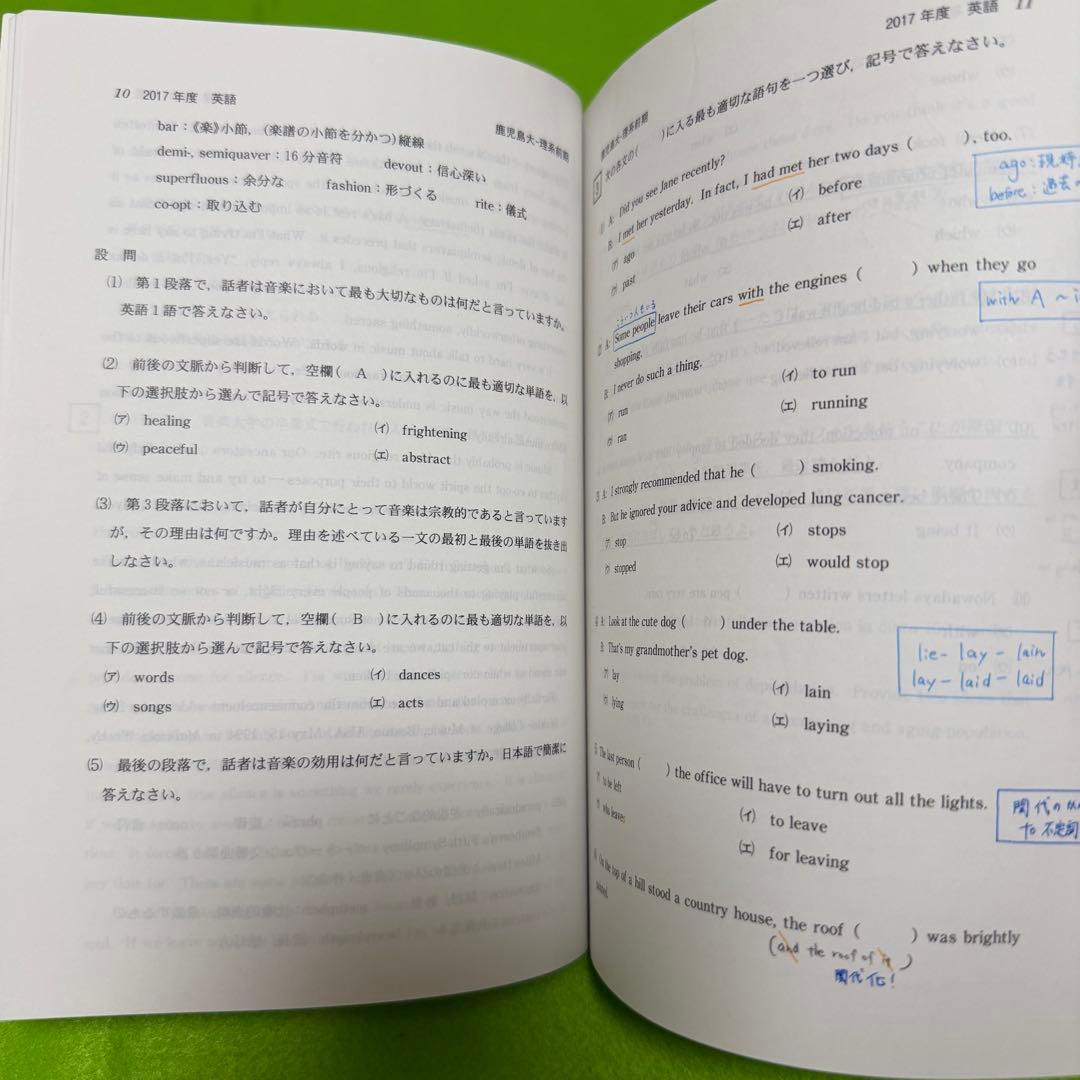 10 2017年度 英語
鹿児島大-理系前期
bar：《楽》小節，(楽譜の小節を分かつ)縦線
demi-, semiquaver：16分音符 devout：信心深い
superfluous：余分な fashion：形づくる rite：儀式
co-opt：取り込む
設 問
(1) 第1段落で，話者は音楽において最も大切なものは何だと言っていますか。
英語1語で答えなさい。
(2) 前後の文脈から判断して，空欄( A )に入れるのに最も適切な単語を，以
下の選択肢から選んで記号で答えなさい。
(ア) healing (イ) frightening
(ウ) peaceful (エ) abstract
(3) 第3段落において，話者が自分にとって音楽は宗教的であると言っています
が，その理由は何ですか。理由を述べている一文の最初と最後の単語を抜き出
しなさい。
(4) 前後の文脈から判断して，空欄( B )に入れるのに最も適切な単語を，以
下の選択肢から選んで記号で答えなさい。
(ア) words (イ) dances
(ウ) songs (エ) acts
(5) 最後の段落で，話者は音楽の効用は何だと言っていますか。日本語で簡潔に
答えなさい。
2017年度 英語 11
鹿児島大-理系前期
3 次の各文の( )に入る最も適切な語句を一つ選び，記号で答えなさい。
(1) A: Did you see Jane recently?
B: I met her yesterday. In fact, I had met her two days ( ), too.
(ア) ago (イ) before
(ウ) past (エ) after
ago：現時
before：過去の
(2) A: Some people leave their cars with the engines ( ) when they go
shopping.
with A ～
B: I never do such a thing.
(ア) run (イ) to run
(ウ) ran (エ) running
(3) A: I strongly recommended that he ( ) smoking.
B: But he ignored your advice and developed lung cancer.
(ア) stop (イ) stops
(ウ) stopped (エ) would stop
(4) A: Look at the cute dog ( ) under the table.
B: That's my grandmother's pet dog.
(ア) lay (イ) lain
(ウ) lying (エ) laying
lie - lay - lain
lay - laid - laid
(5) The last person ( ) the office will have to turn out all the lights.
(ア) to be left (イ) to leave
(ウ) who leaves (エ) for leaving
関代の
to 不定詞
(6) On the top of a hill stood a country house, the roof ( ) was brightly
painted.
(and the roof of it)
関代化！